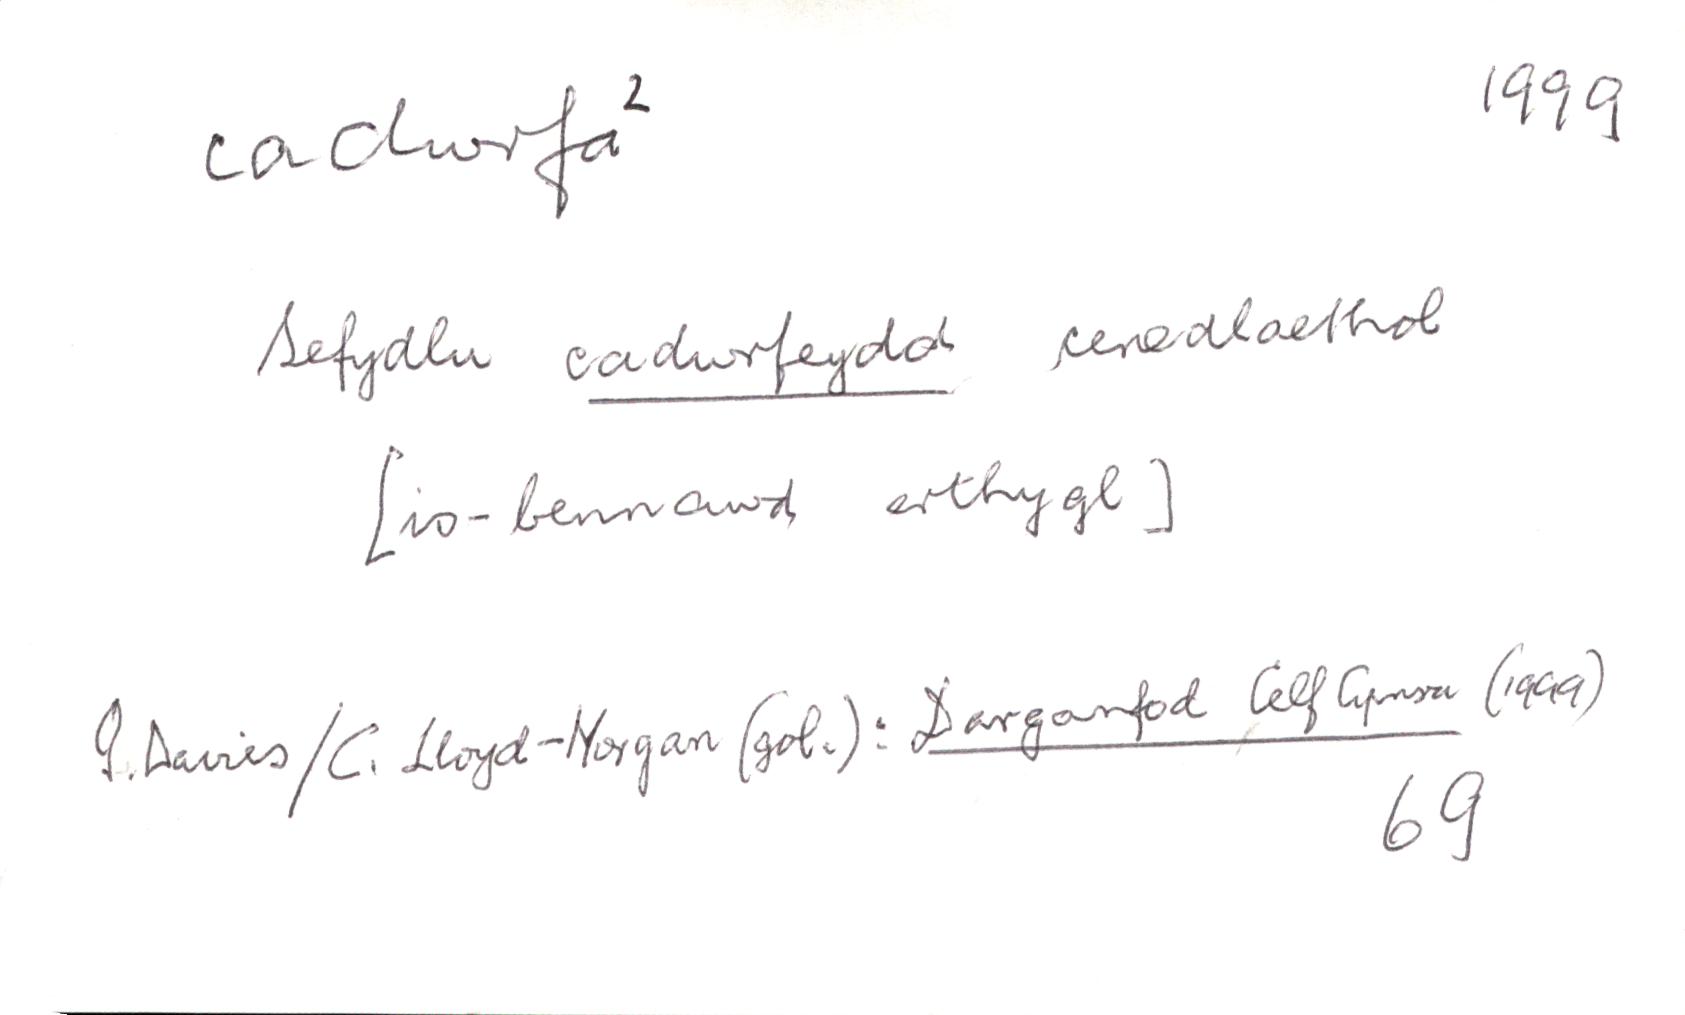 cadwrfa² 1999
Sefydlu cadwrfeydd cenedlaethol
[is-bennawd erthygl]
I. Davies/C. Lloyd-Morgan (gol.): Darganfod Celf Cymru (1999)
69